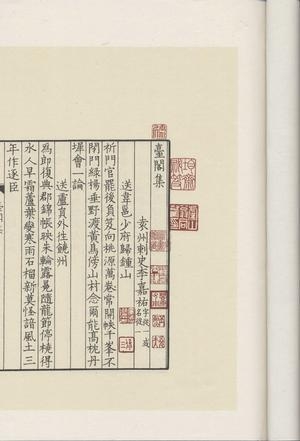 臺閣集
袁州刺史李嘉祐字從一或名從一
送韋邑少府歸鍾山
祈門官罷後負笈向桃源萬卷常開帙千峯不
閉門綠楊垂野渡黃鳥傍山村念爾能高枕丹
墀會一論
送盧員外往饒州
為郎復典郡錦帳映朱輪露冕隨龍節停橈得
水人早霜蘆葉變寒雨石榴新莫怪諳風土三
年作逐臣